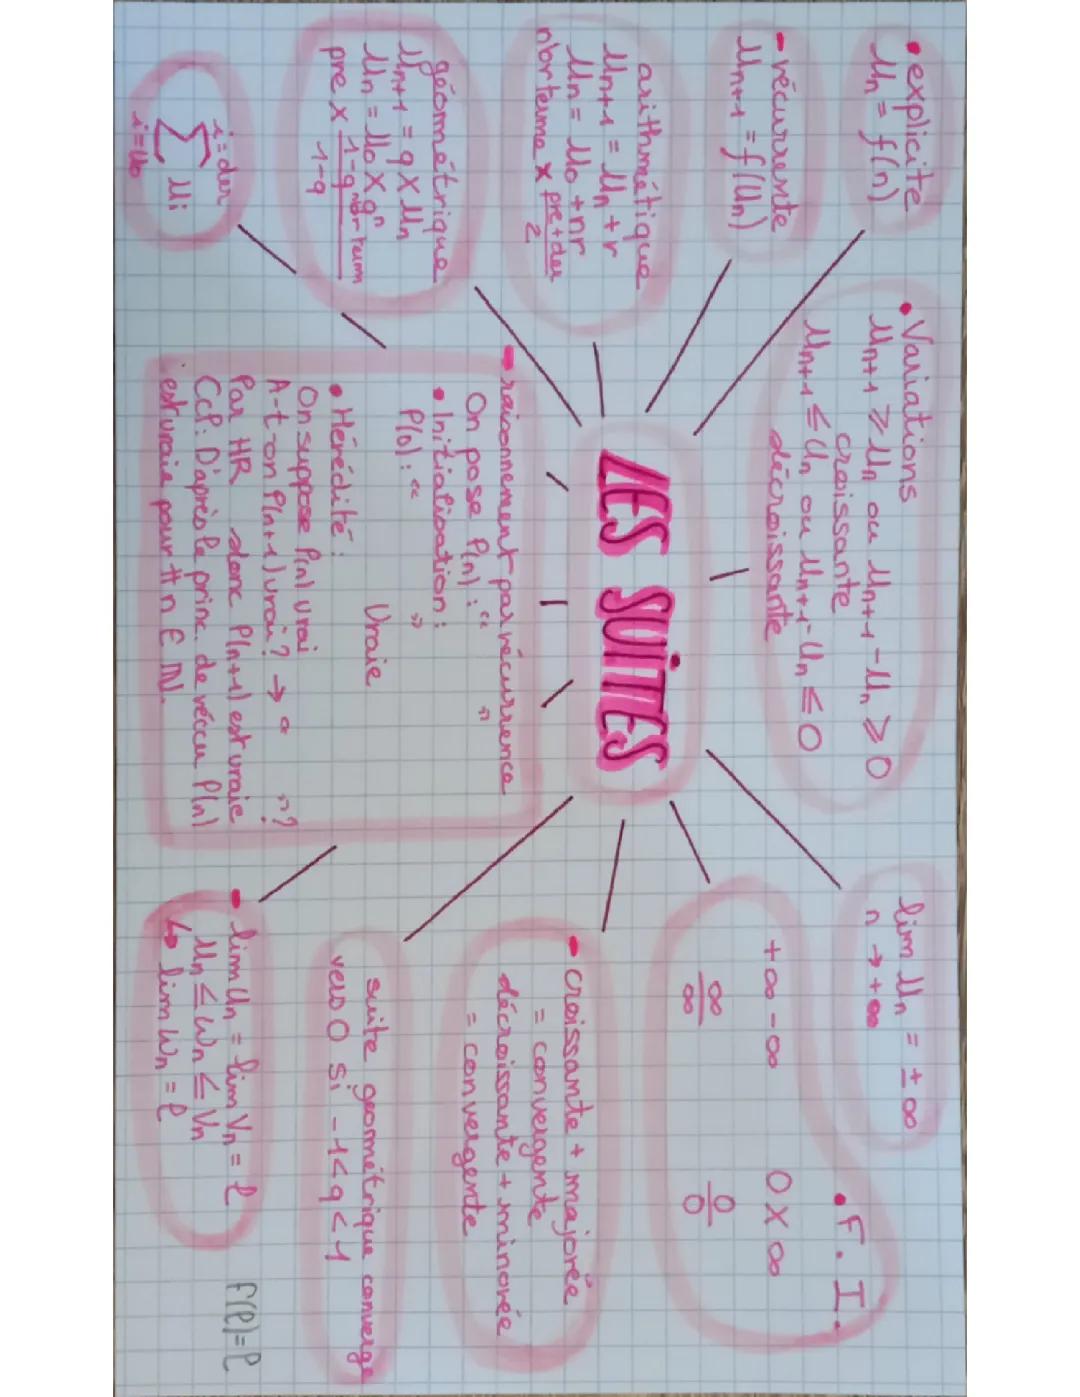 LES SUITES
• explicite
Un = f(n)
- récurrente
Un+1 = f(Un)
arithmétique
Un+1 = Un + r
Un = U0 + nr
nbr terme × (pre + der)/2
géométrique
Un+1 = q × Un
Un = U0 × q^n
pre × (1 - q^nbr term)/(1 - q)
i = der
∑ Ui
i = U0
• Variations
Un+1 ≥ Un ou Un+1 - Un ≥ 0
croissante
Un+1 ≤ Un ou Un+1 - Un ≤ 0
décroissante
- raisonnement par récurrence
On pose P(n) : " "
• Initialisation :
P(0) : " "
Vraie
• Hérédité :
On suppose P(n) vrai
A-t-on P(n+1) vrai ? → " " ?
Par HR donc P(n+1) est vraie
Ccl : D'après le princ. de réccu P(n)
est vraie pour tt n ∈ ℕ.
lim Un = ± ∞
n → + ∞
• F. I.
+∞ -∞ 0 × ∞
∞/∞ 0/0
- croissante + majorée
= convergente
décroissante + minorée
= convergente
suite géométrique converge
vers 0 si -1 < q < 1
- lim Un = lim Vn = ℓ
Un ≤ Wn ≤ Vn
↳ lim Wn = ℓ
f(ℓ) = ℓ